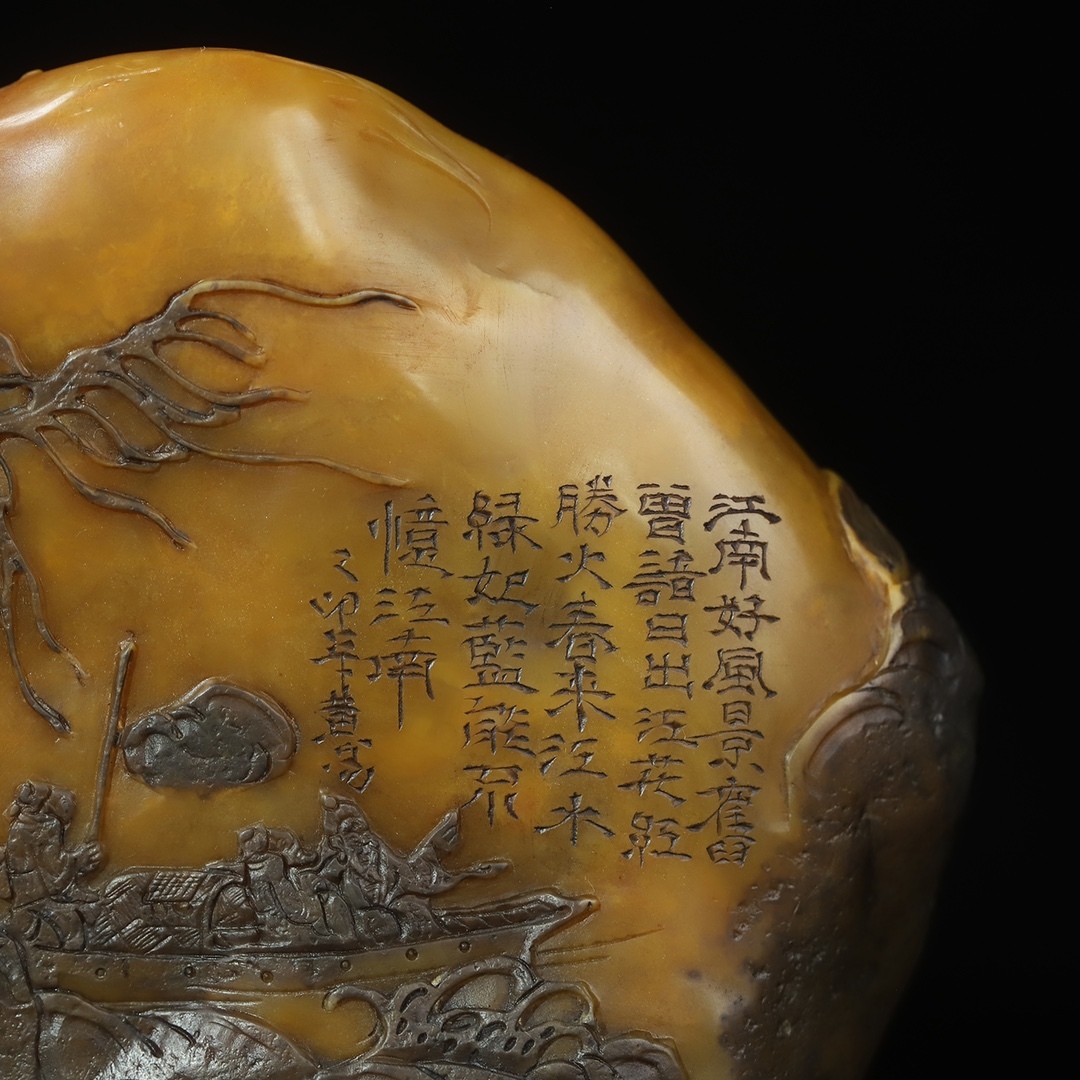 江南好風景舊
曾諳日出江花紅
勝火春來江水
緑如藍能不
憶江南
卯年黄